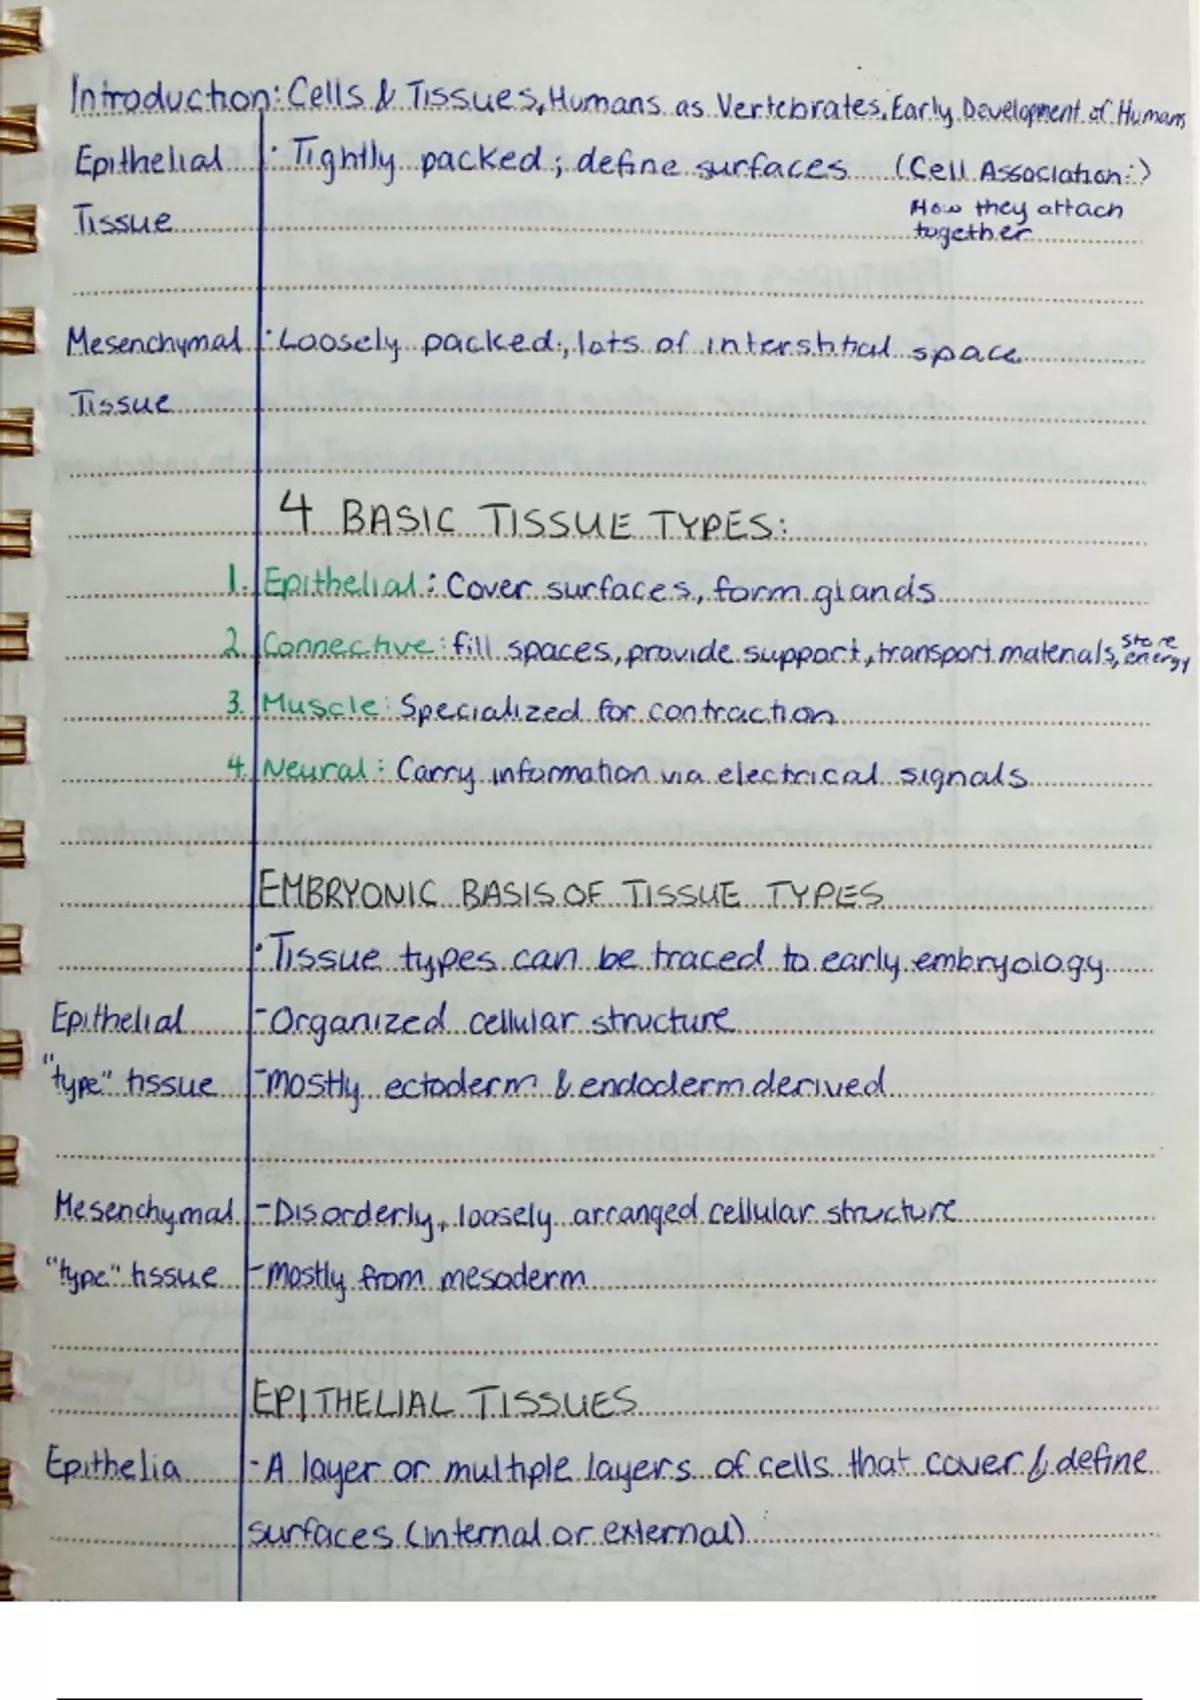 Introduction: Cells & Tissues, Humans as Vertebrates, Early Development of Humans
Epithelial · Tightly packed; define surfaces (Cell Association:)
Tissue How they attach
together
Mesenchymal · Loosely packed, lots of interstitial space
Tissue
4 BASIC TISSUE TYPES:
1. Epithelial: Cover surfaces, form glands
2. Connective: fill spaces, provide support, transport materials, store energy
3. Muscle: Specialized for contraction
4. Neural: Carry information via electrical signals
EMBRYONIC BASIS OF TISSUE TYPES
· Tissue types can be traced to early embryology
Epithelial - Organized cellular structure
"type" tissue - Mostly ectoderm & endoderm derived
Mesenchymal - Disorderly, loosely arranged cellular structure
"type" tissue - Mostly from mesoderm
EPITHELIAL TISSUES
Epithelia - A layer or multiple layers of cells that cover & define
surfaces (internal or external)